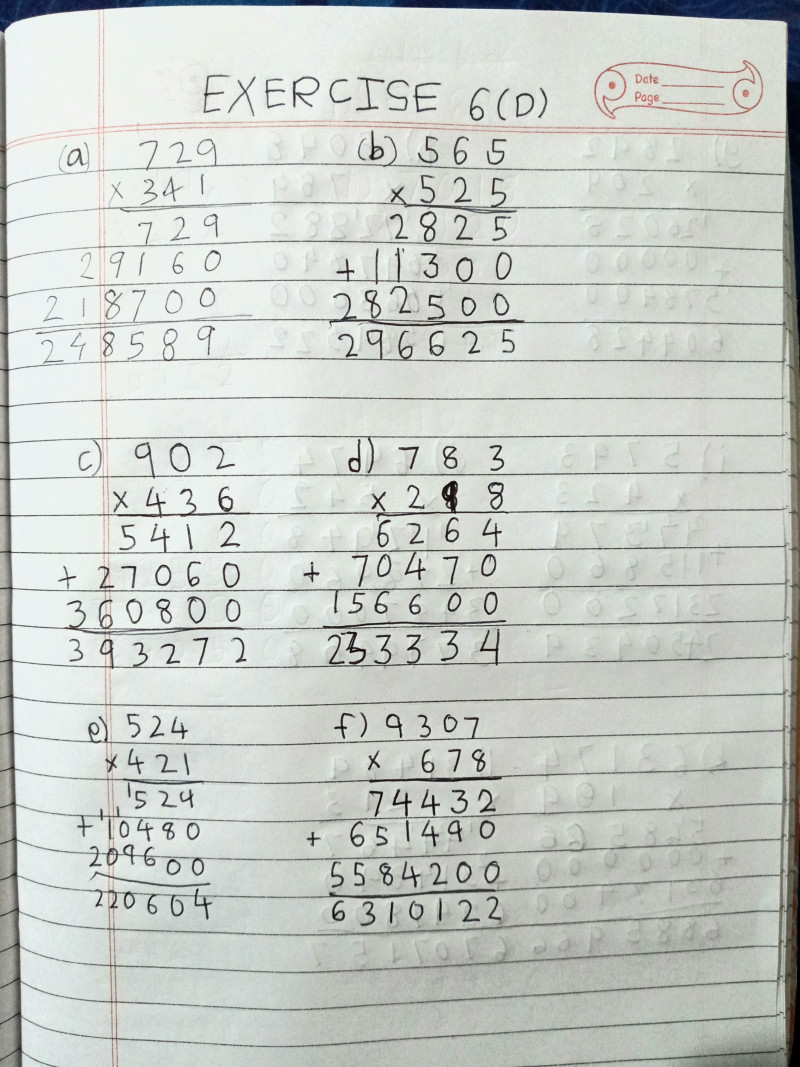 EXERCISE 6(D)
Date
Page
(a) 729
x 341
729
29160
218700
248589
(b) 565
x 525
2825
+ 11300
282500
296625
c) 902
x 436
5412
+ 27060
360800
393272
d) 783
x 298
6264
+ 70470
156600
233334
e) 524
x 421
524
+ 10480
209600
220604
f) 9307
x 678
74432
+ 651490
5584200
6310122